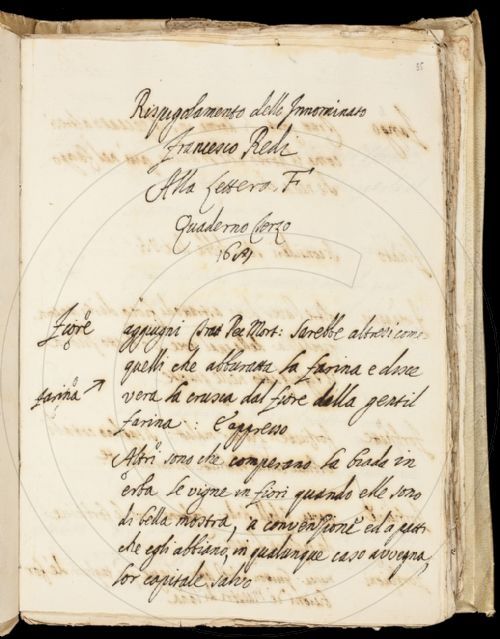 35
Rispigolamento dello Innominato
Francesco Redi
Alla Lettera F
Quaderno Terzo
Fiore aggiugni Trat Pec Mort: Sarebbe altresì come
quelli che abburatta la farina e disce
farina vera la crusca dal fiore della gentil
farina: E appresso
Altri sono che comperano la biada in
erba le vigne in fiori quando elle sono
di bella mostra, a convensione ed a patti
che egli abbiano, in qualunque caso avvegna,
lor capitale salvo